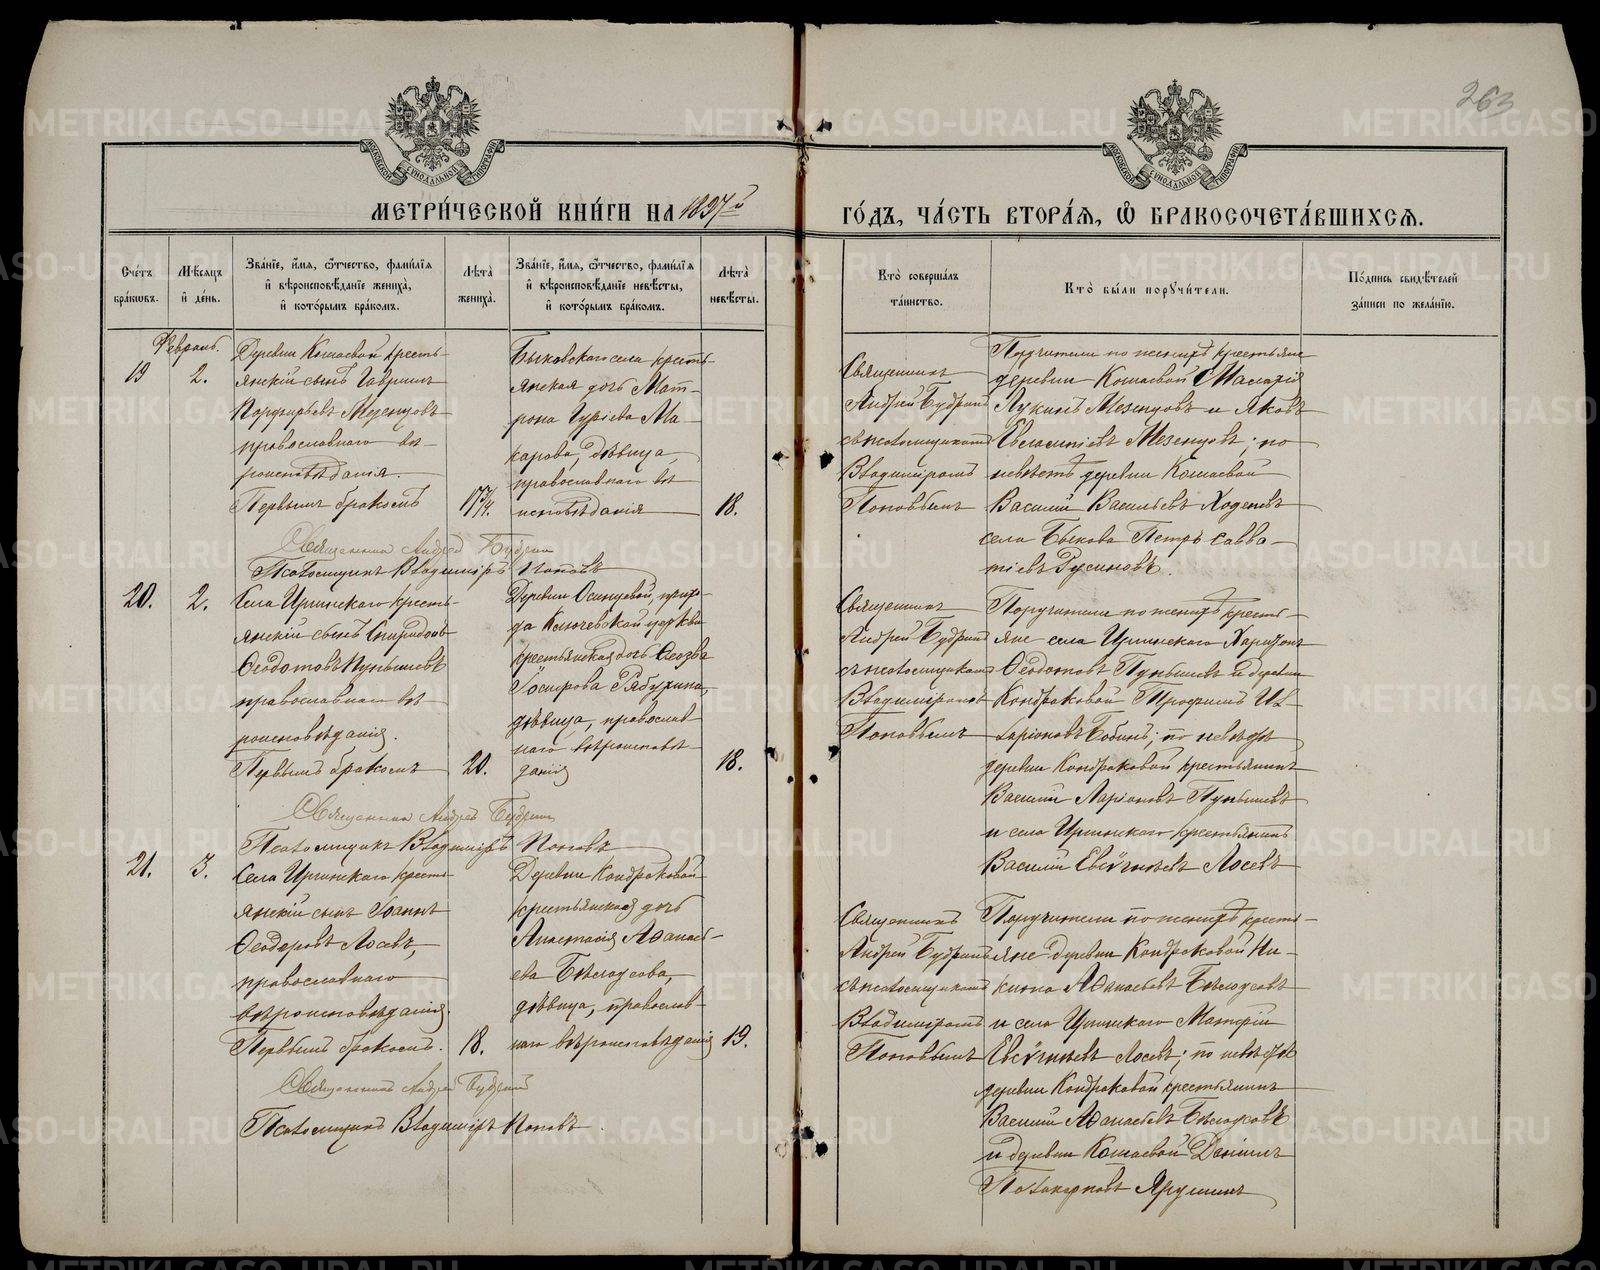 263
МЕТРИ́ЧЕСКОЙ КНИ́ГИ НА 1897й
ГО́ДЪ, ЧА́СТЬ ВТОРА́Я, Ѡ҆ БРАКОСОЧЕТА́ВШИХСЯ.
Сче́тъ бра́кѡвъ.
Мѣ́сяцъ и҆ де́нь.
Зва́нїе, и҆́мя, ѻ҆́тчество, фамі́лїя
и҆ вѣроисповѣ́данїе жениха̀,
и҆ кото́рымъ бра́комъ.
Лѣ́та жениха̀.
Зва́нїе, и҆́мя, ѻ҆́тчество, фамі́лїя
и҆ вѣроисповѣ́данїе невѣ́сты,
и҆ кото́рымъ бра́комъ.
Лѣ́та невѣ́сты.
Кто̀ соверша́лъ
та́инство.
Кто̀ бы́ли поручи́тели.
По́дпись свидѣ́телей
за́писи по жела́нїю.
Февраль.
19
2.
Деревни Кошаевой кресть-
янскій сынъ Гавріилъ
Порфирьевъ Мезенцовъ
православнаго вѣ-
роисповѣданія.
Первымъ бракомъ
17¾.
Быковскаго села кресть-
янская дочь Мат-
рона Гуріева Ма-
карова, дѣвица,
православнаго вѣ
исповѣданія
18.
Священникъ
Андрей Будринъ
съ псаломщикомъ
Владиміромъ
Поповымъ
Поручители по женихѣ крестьяне
деревни Кошаевой
Лукинъ Мезенцовъ и Яковъ
Евлампіевъ Мезенцовъ; по
невѣстѣ деревни Кошаевой
Василій Васильевъ Ходеновъ
села Быкова Петръ Савва-
тіевъ Русиновъ.
Священникъ Андрей Будринъ
Псаломщикъ Владиміръ Поповъ
20.
2.
Села Иргинскаго кресть-
янскій сынъ Спиридонъ
Ѳеодотовъ Пупышевъ
православнаго вѣ-
роисповѣданія.
Первымъ бракомъ
20.
Деревни Осинцевой, прихо-
да Ключевской церкви
крестьянская дочь
Рябухина,
дѣвица, православ
наго вѣроисповѣ-
данія
18.
Священникъ
Андрей Будринъ
съ псаломщикомъ
Владиміромъ
Поповымъ
Поручители по женихѣ кресть-
яне села Иргинскаго Харитонъ
Ѳеодотовъ Пупышевъ и деревни
Кондраковой Трофимъ Ил-
ларіоновъ Бобинъ; по невѣстѣ
деревни Кондраковой крестьянинъ
Василій Ларіоновъ Пупышевъ
и села Иргинскаго крестьянинъ
Василій Евсѵгніевъ Лосевъ
Священникъ Андрей Будринъ
Псаломщикъ Владиміръ Поповъ
21.
3.
Села Иргинскаго кресть-
янскій сынъ Іоаннъ
Ѳеодоровъ Лосевъ,
православнаго
вѣроисповѣданія.
Первымъ бракомъ.
18.
Деревни Кондраковой
крестьянская дочь
Анастасія Аѳанась-
ева Бѣлоусова,
дѣвица, православ-
наго вѣроисповѣданія
19.
Священникъ
Андрей Будринъ
съ псаломщикомъ
Владиміромъ
Поповымъ
Поручители по женихѣ кресть-
яне деревни Кондраковой Ни-
кита Аѳанасьевъ Бѣлоусовъ
и села Иргинскаго Матѳій
Евсѵгніевъ Лосевъ; по невѣстѣ
деревни Кондраковой крестьянинъ
Василій Аѳанасьевъ
и деревни Кошаевой Даніилъ
Поликарповъ Ярушинъ
Священникъ Андрей Будринъ
Псаломщикъ Владиміръ Поповъ.
METRIKI.GASO-URAL.RU